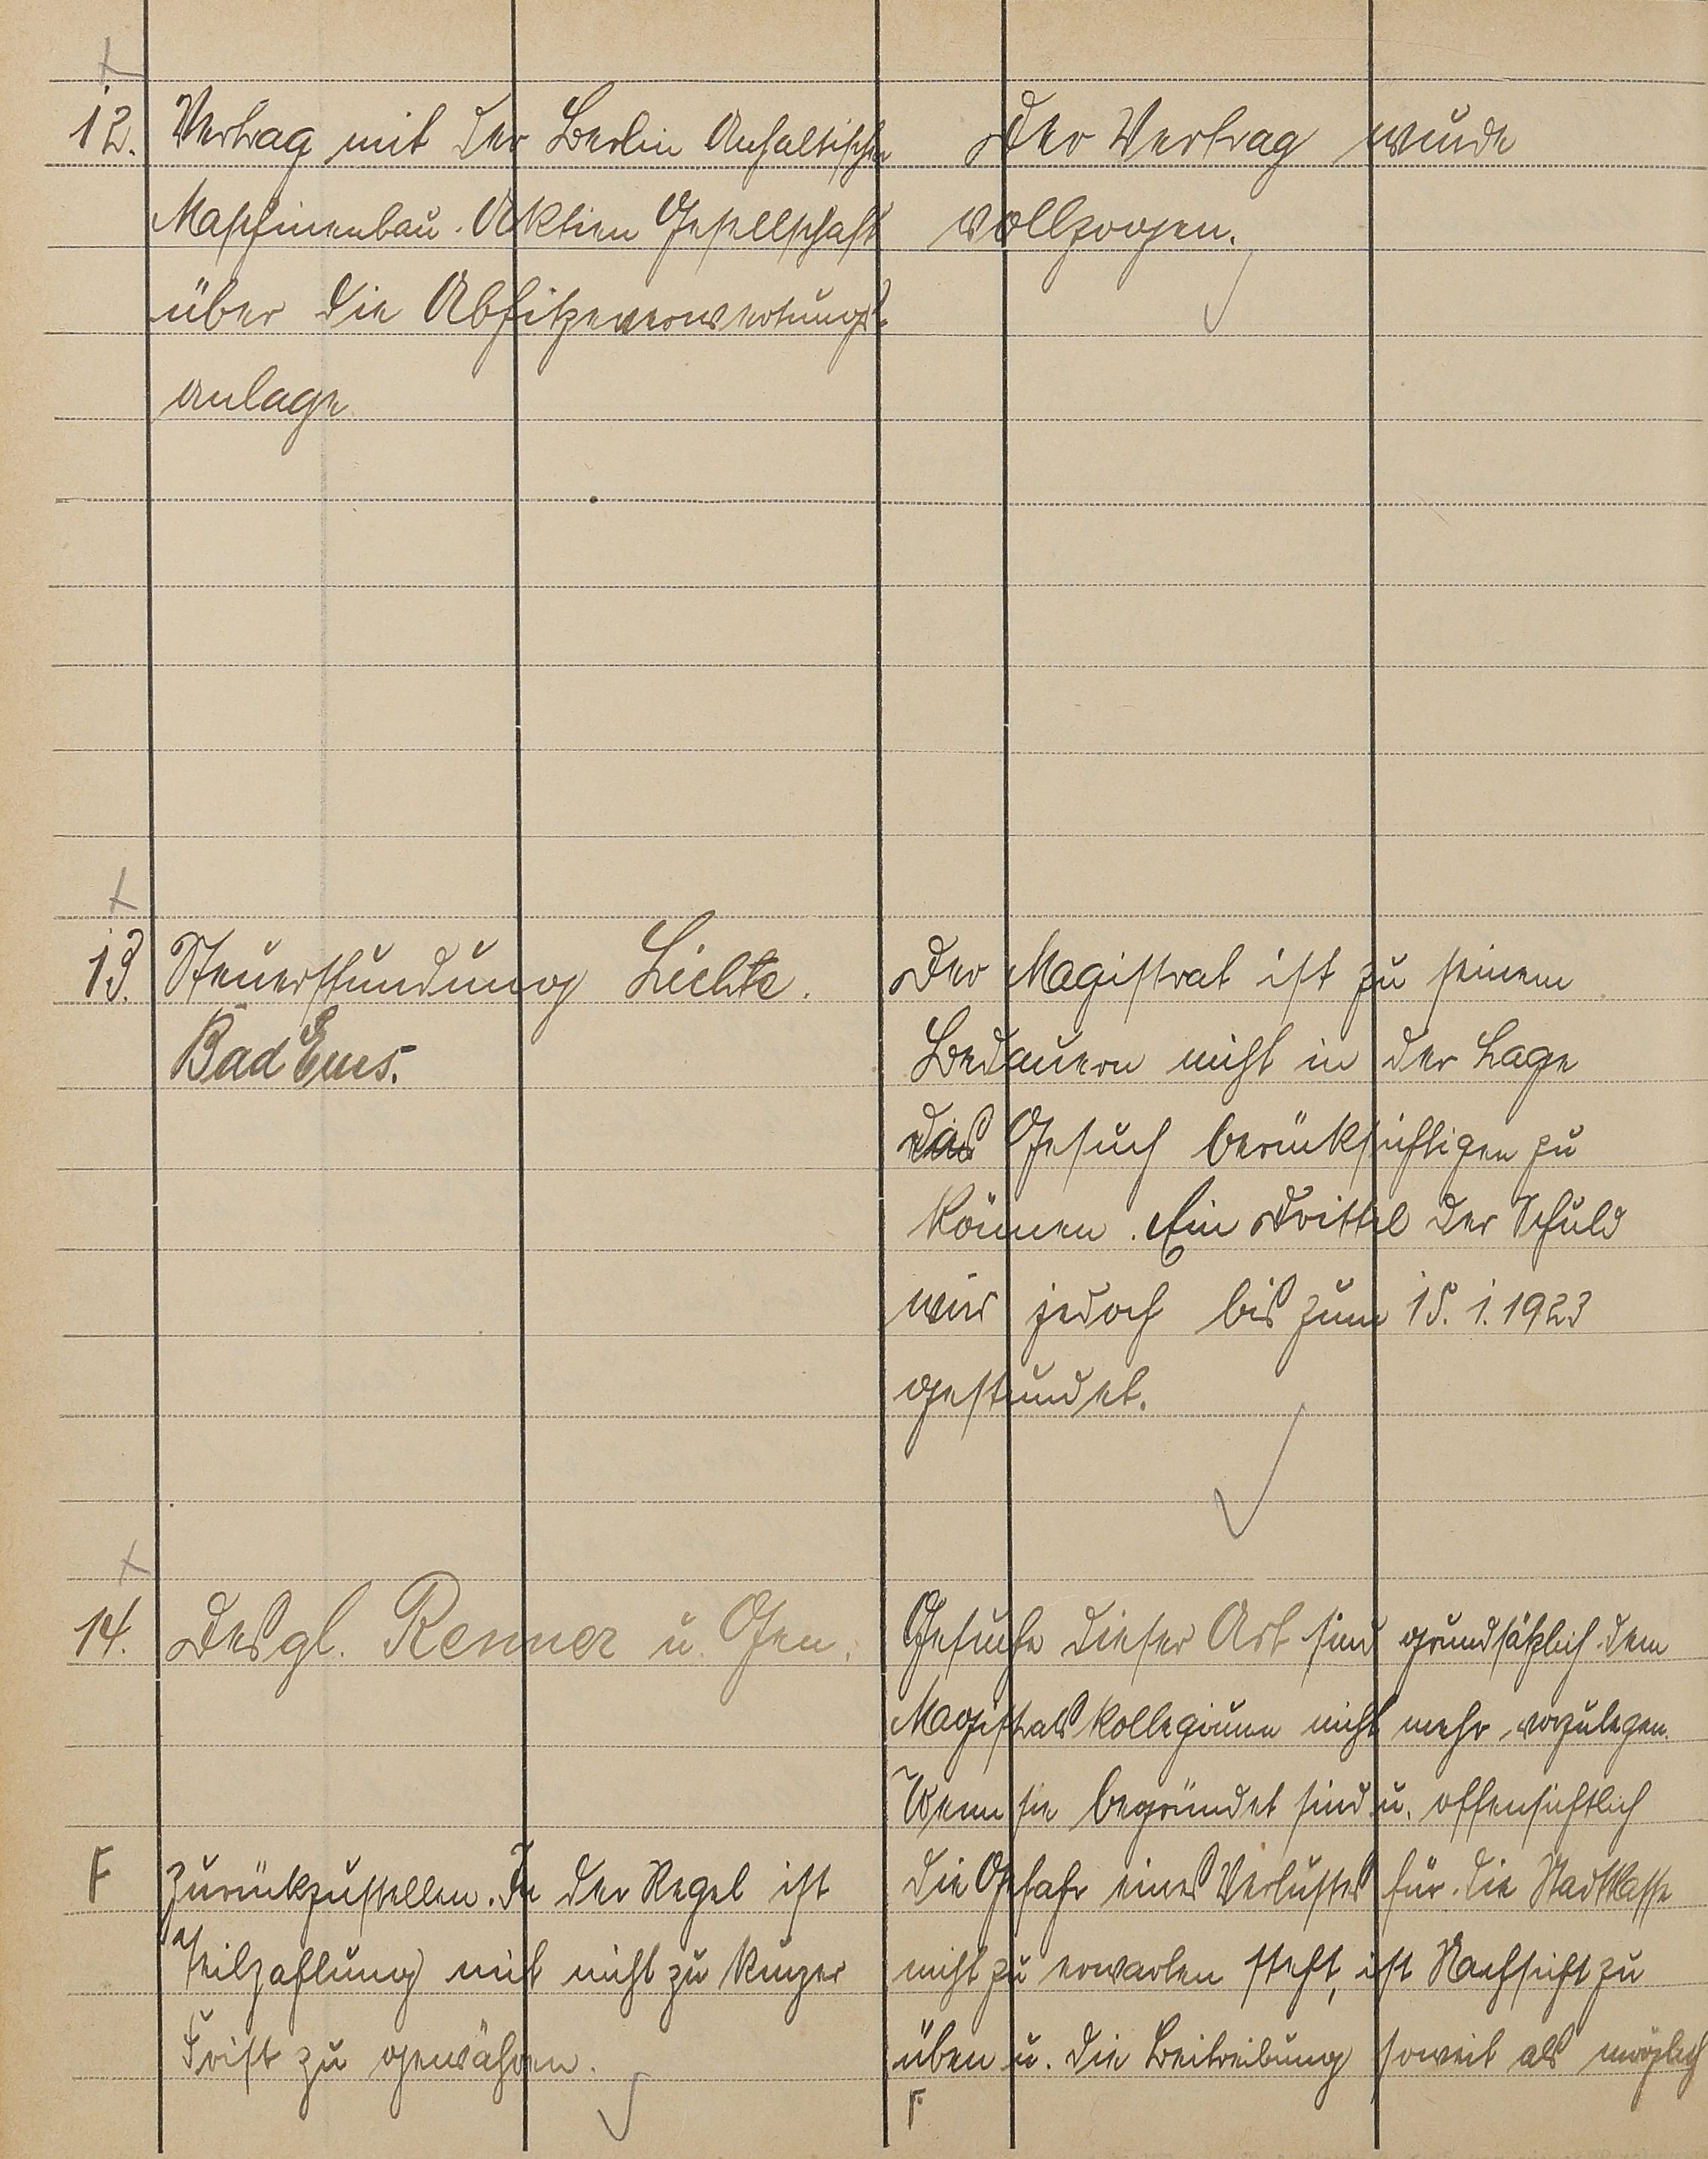 12.
Vertrag mit der Berlin Anhaltischen
Maschinenbau-Aktien Gesellschaft
über die Abhitzeverwertungs-
anlage
Der Vertrag wurde
vollzogen.
13.
Steuerstundung Lichte.
Bad Ems.
Der Magistrat ist zu seinem
Bedauern nicht in der Lage
das Gesuch berücksichtigen zu
können. Ein Drittel der Schuld
wird jedoch bis zum 15. 1. 1923
gestundet.
14.
Desgl. Renner u. Gen.
Gesuche dieser Art sind grundsätzlich dem
Magistratskollegium nicht mehr vorzulegen.
Wenn sie begründet sind u. offensichtlich
die Gefahr eines Verlustes für die Stadtkasse
nicht zu erwarten steht, ist Nachsicht zu
üben u. die Beitreibung soweit als möglich
F
F
zurückzustellen. In der Regel ist
Teilzahlung mit nicht zu kurzer
Frist zu gewähren.